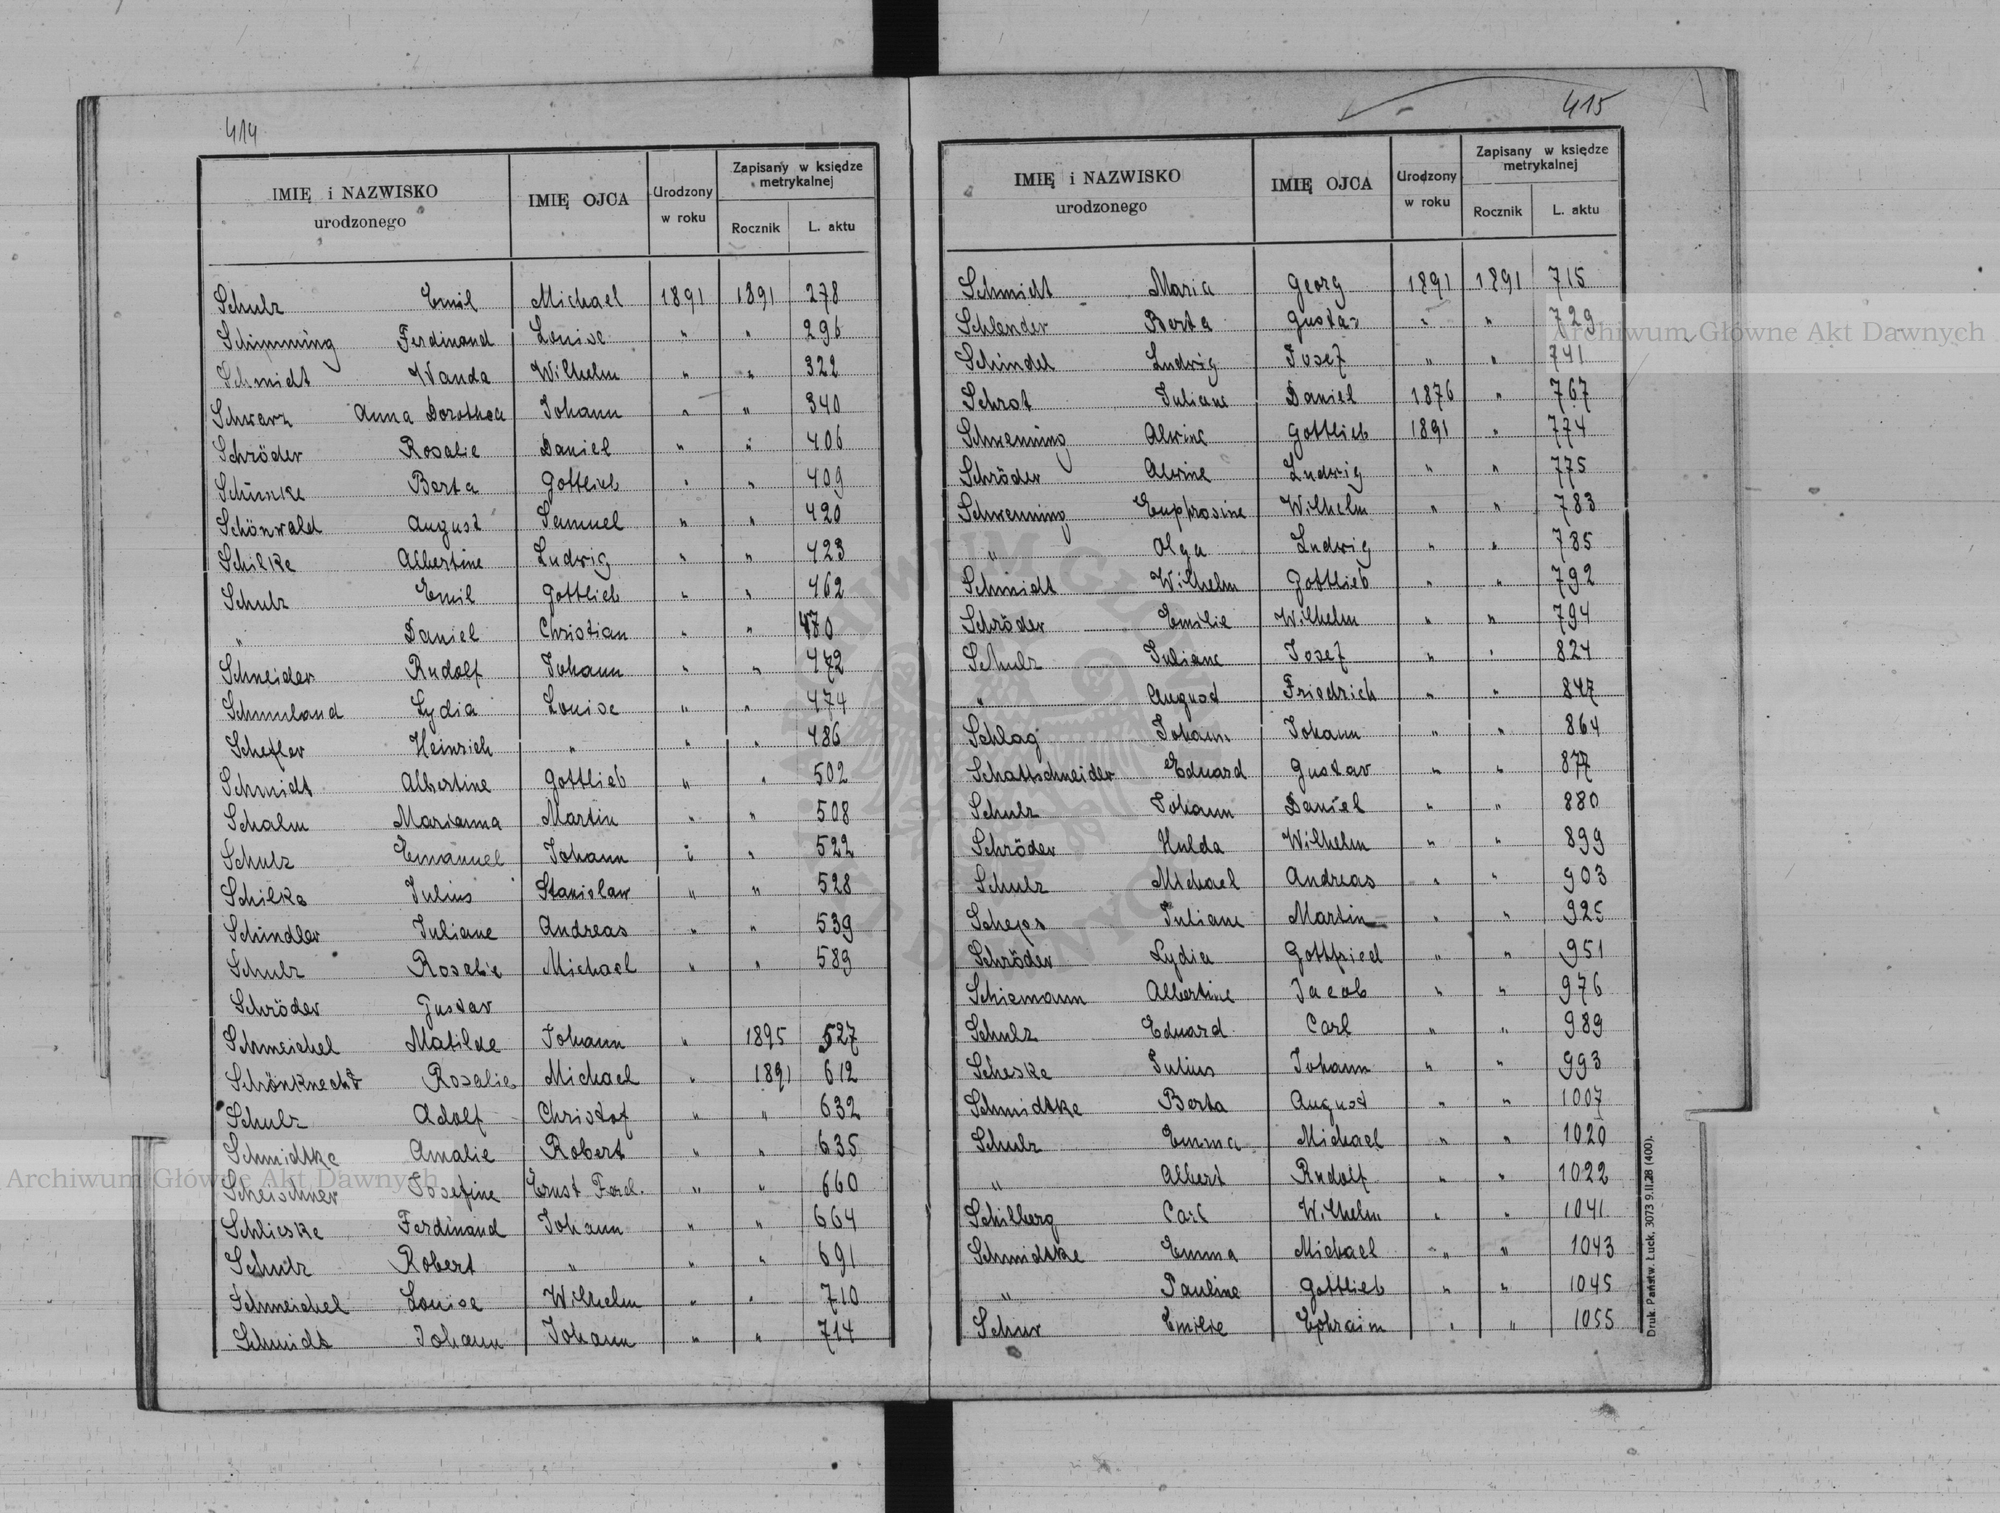 414
IMIĘ i NAZWISKO urodzonego IMIĘ OJCA Urodzony w roku Zapisany w księdze metrykalnej Rocznik L. aktu
Schulz Emil Michael 1891 1891 278
Schimming Ferdinand Louise " " 296
Schmidt Wanda Wilhelm " " 322
Schwarz Anna Dorothea Johann " " 340
Schröder Rosalie Daniel " " 406
Schünke Berta Gottlieb " " 409
Schönwald August Samuel " " 420
Schilke Albertine Ludwig " " 423
Schulz Emil Gottlieb " " 462
" Daniel Christian " " 470
Schneider Rudolf Johann " " 472
Schmuland Lydia Louise " " 474
Schefler Heinrich " " " 486
Schmidt Albertine Gottlieb " " 502
Schalm Marianna Martin " " 508
Schulz Emanuel Johann " " 522
Schilke Julius Stanislaw " " 528
Schindler Juliane Andreas " " 539
Schulz Rosalie Michael " " 589
Schröder Gustav
Schmeichel Matilde Johann " 1895 527
Schönknecht Rosalie Michael " 1891 612
Schulz Adolf Christof " " 632
Schmidtke Amalie Robert " " 635
Scheischner Josefine Ernst Ferd. " " 660
Schlieske Ferdinand Johann " " 664
Schulz Robert " " " 691
Schmeichel Louise Wilhelm " " 710
Schmidt Johann Johann " " 714
415
IMIĘ i NAZWISKO urodzonego IMIĘ OJCA Urodzony w roku Zapisany w księdze metrykalnej Rocznik L. aktu
Schmidt Maria Georg 1891 1891 715
Schlender Berta Gustav " " 729
Schindel Ludwig Josef " " 741
Schrot Juliane Daniel 1876 " 767
Schwenning Alwine Gottlieb 1891 " 774
Schröder Alwine Ludwig " " 775
Schwenning Euphrosine Wilhelm " " 783
" Olga Ludwig " " 785
Schmidt Wilhelm Gottlieb " " 792
Schröder Emilie Wilhelm " " 794
Schulz Juliane Josef " " 824
" August Friedrich " " 847
Schlag Johann Johann " " 864
Schattschneider Eduard Gustav " " 877
Schulz Johann Daniel " " 880
Schröder Hulda Wilhelm " " 899
Schulz Michael Andreas " " 903
Juliane Martin " " 925
Schröder Lydia Gottfried " " 951
Schiemann Albertine Jacob " " 976
Schulz Eduard Carl " " 989
Scheske Julius Johann " " 993
Schmidtke Berta August " " 1007
Schulz Emma Michael " " 1020
" Albert Rudolf " " 1022
Schilberg Carl Wilhelm " " 1041
Schmidtke Emma Michael " " 1043
" Pauline Gottlieb " " 1045
Schur Emilie Ephraim " " 1055
Druk. Państw. Łuck, 3073 9.II.28 (400).
Archiwum Główne Akt Dawnych
Archiwum Główne Akt Dawnych
ARCHIWUM GŁÓWNE AKT DAWNYCH